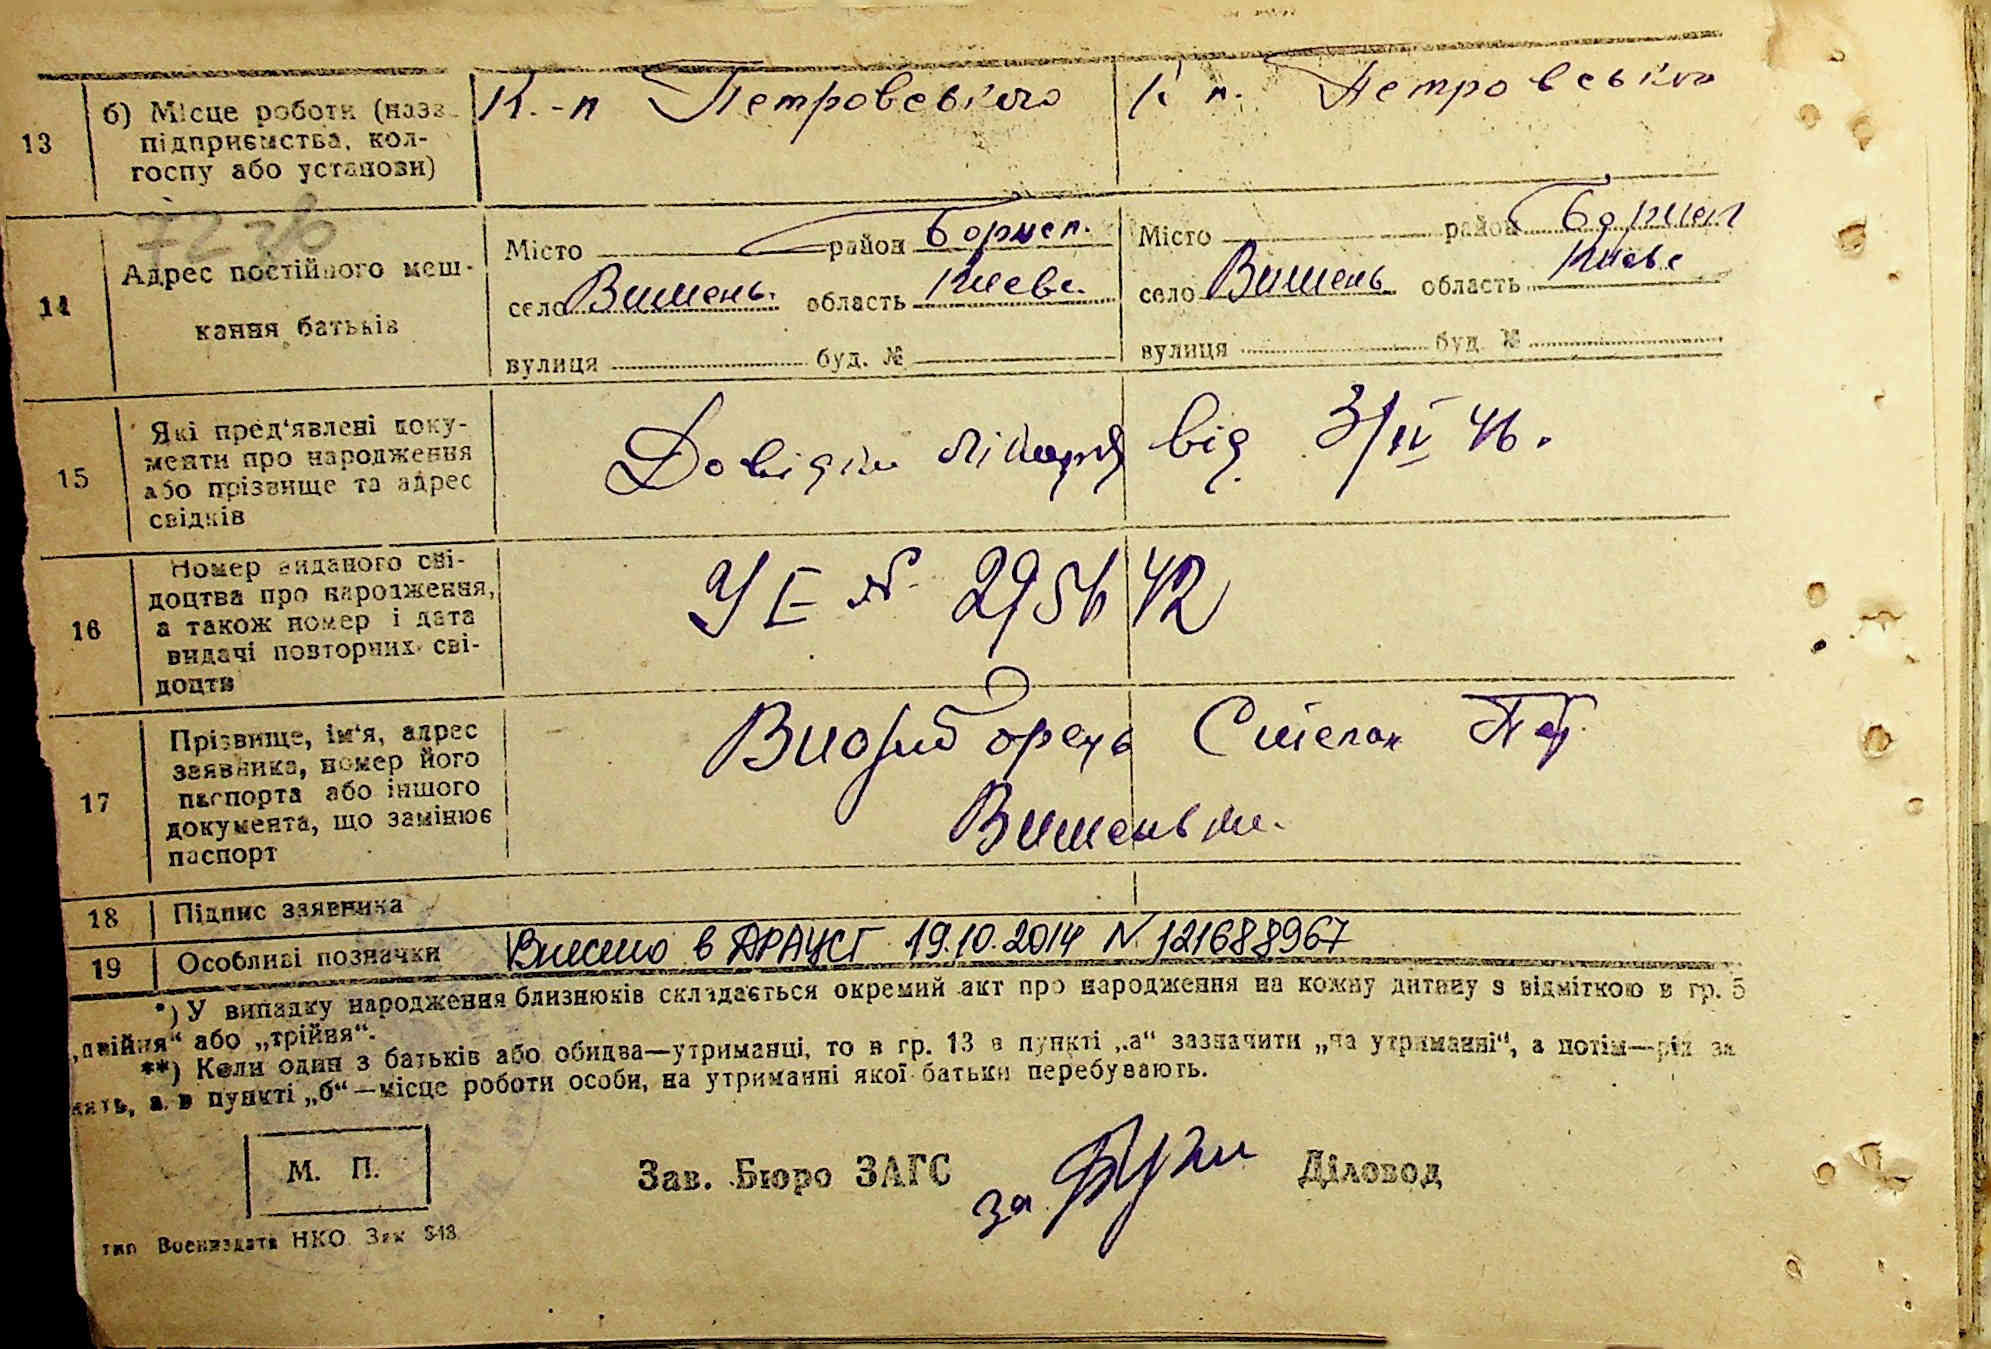 13 б) Місце роботи (назв. К.-п Петровського К п. Петровського
підприємства, кол-
госпу або установи)
14 Адрес постійного меш-
кання батьків
Місто район Борисп. Місто район
село Вишень. область Києвс. село Вишень область Києвс
вулиця буд. № вулиця буд. №
15 Які пред'явлені доку-
менти про народження
або прізвище та адрес
свідків
Довідка лікаря від 3/IV 46.
16 Номер виданого сві-
доцтва про народження,
а також номер і дата
видачі повторних сві-
доцтв
УЕ №
17 Прізвище, ім'я, адрес
заявника, номер його
паспорта або іншого
документа, що замінює
паспорт
Степан
18 Підпис заявника
19 Особливі позначки Внесено в ДРАЦСГ 19.10.2014 N 121688967
*) У випадку народження близнюків складається окремий акт про народження на кожну дитину з відміткою в гр. 5
„двійня“ або „трійня“.
**) Коли один з батьків або обидва—утриманці, то в гр. 13 в пункті „а“ зазначити „на утриманні“, а потім—рід за
нять, а в пункті „б“—місце роботи особи, на утриманні якої батьки перебувають.
М. П.
Зав. Бюро ЗАГС за Діловод
тип Воениздата НКО Зак